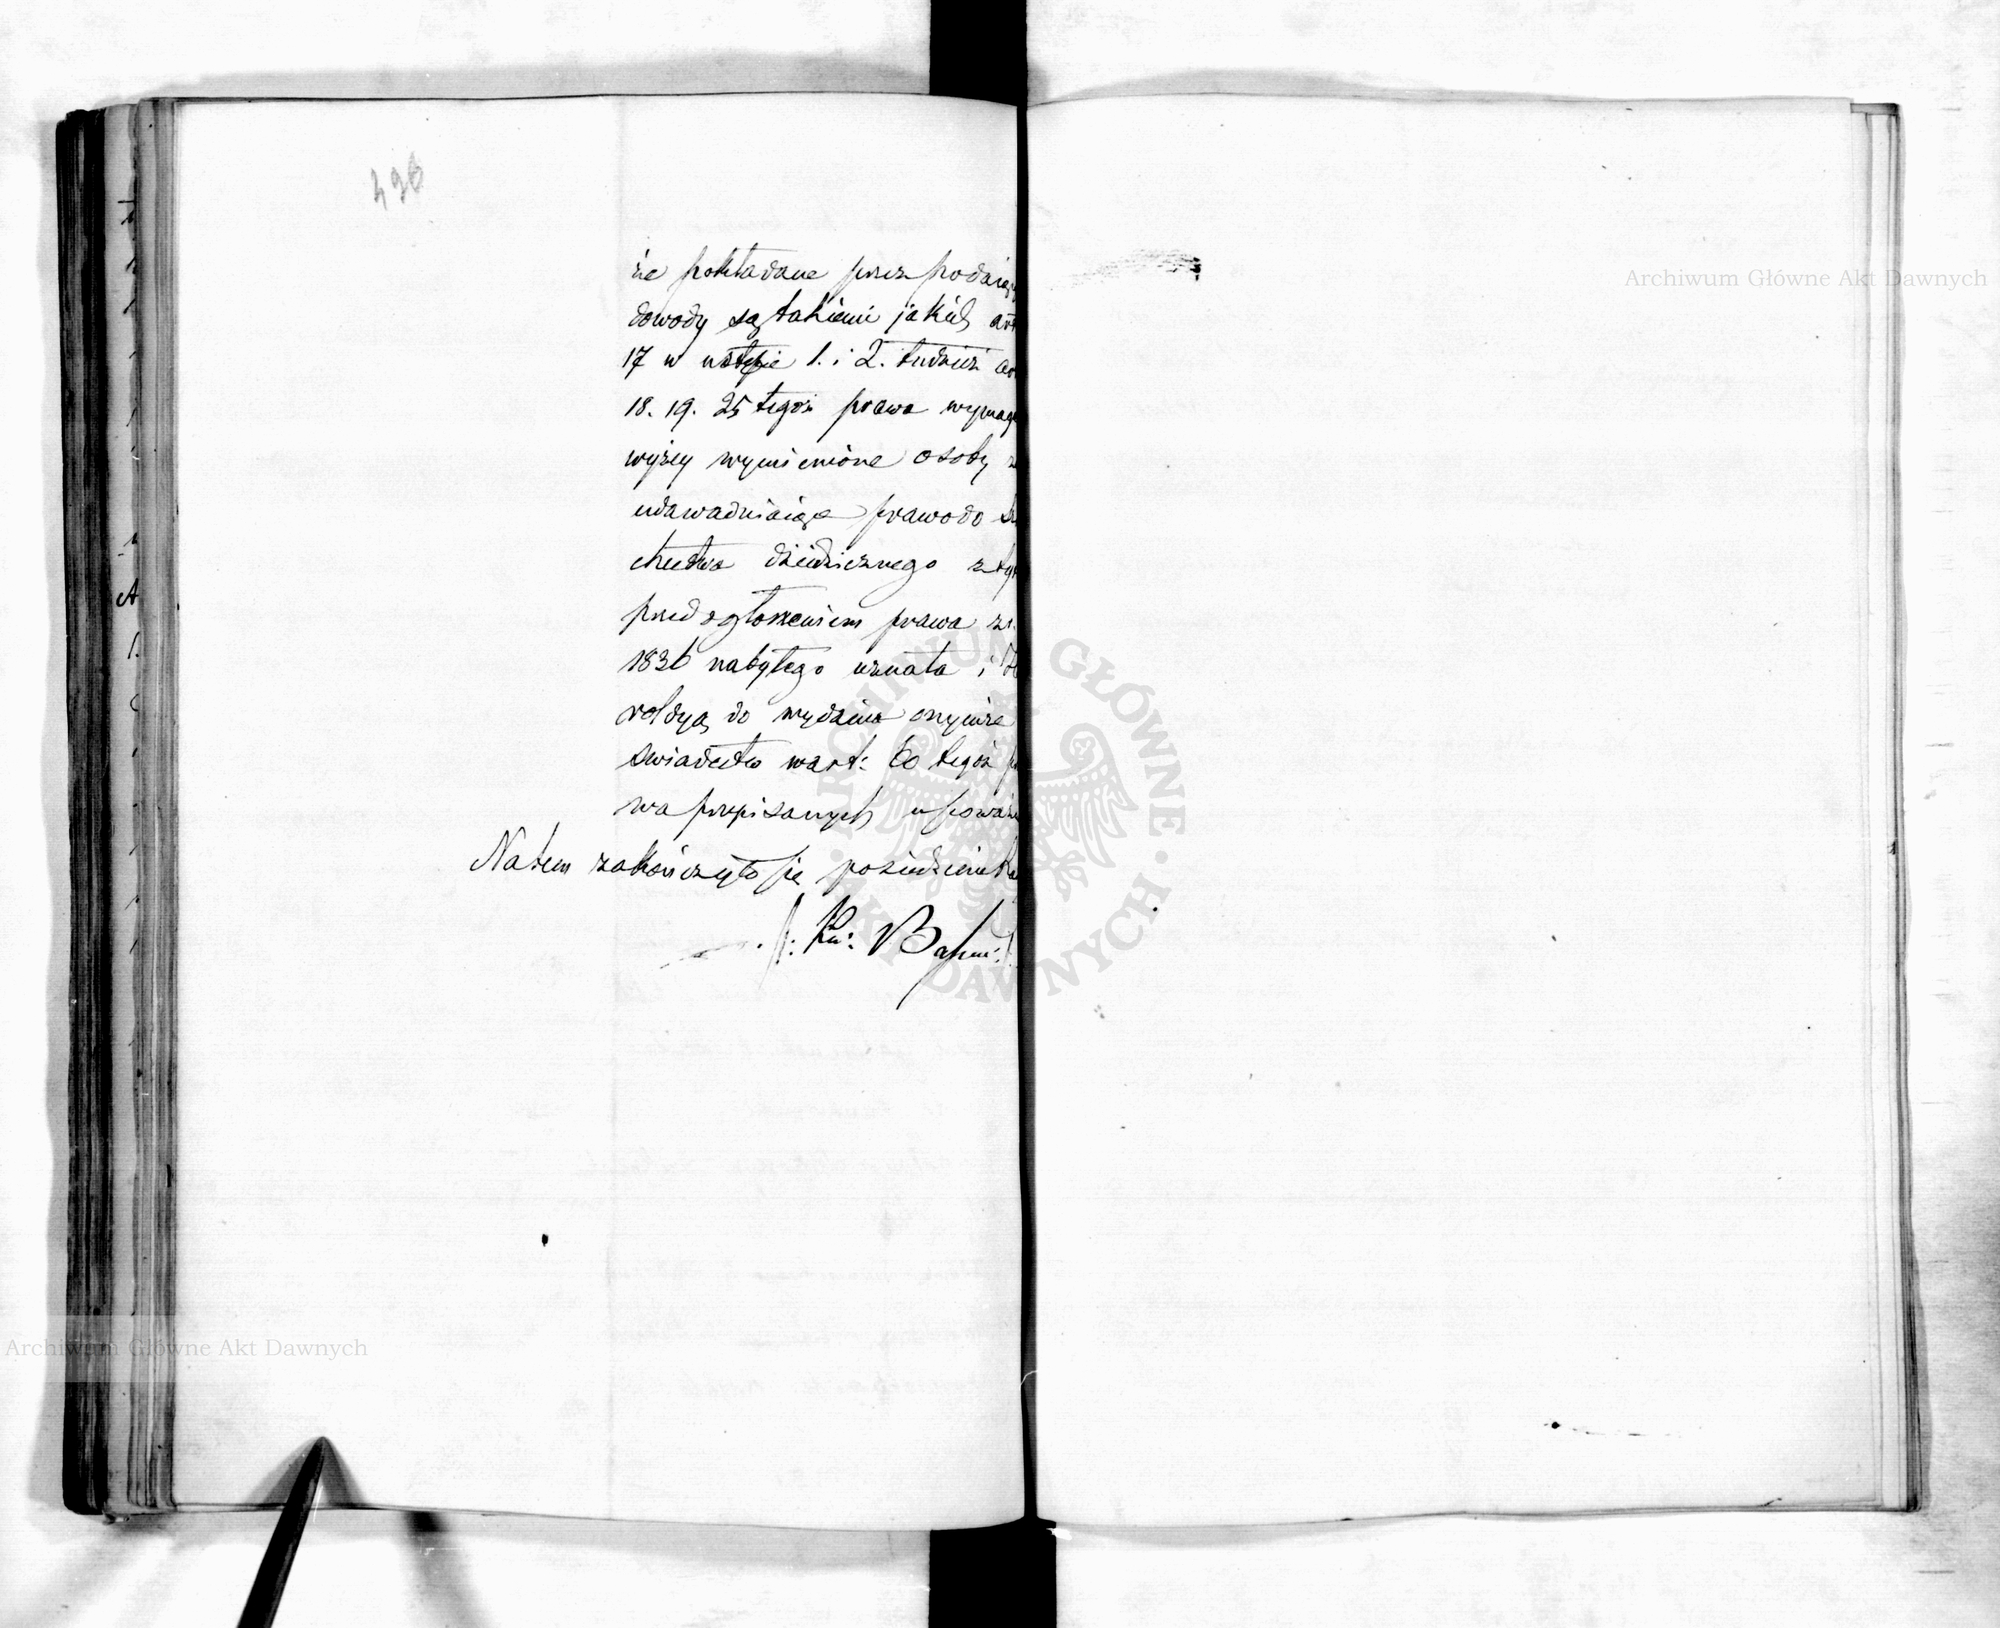 496
że pokładane przez podzię
dowody są takiemi jakich art
17 w ustępie 1. i 2. tudzież ar
18. 19. 25 tegoż prawa wymaga
wyżey wymienione osoby
udawadniaiące prawo do
chectwa dziedzicznego z ty
przed ogłoszeniem prawa z r.
1836 nabytego uznała i He
roldyą do wydania onymże
świadectw w art: 60 tegoż pr
wa przepisanych upoważn
Na tem zakończyło się posiedzenie
Archiwum Główne Akt Dawnych
ARCHIWUM GŁÓWNE AKT DAWNYCH
Archiwum Główne Akt Dawnych